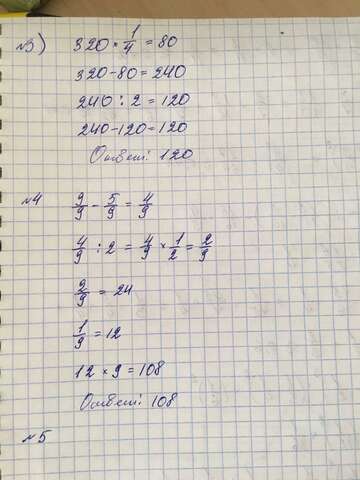 №3) 320 × 1/4 = 80
320-80=240
240 : 2 = 120
240-120=120
Ответ: 120
№4 9/9 - 5/9 = 4/9
4/9 : 2 = 4/9 × 1/2 = 2/9
2/9 = 24
1/9 = 12
12 × 9 = 108
Ответ: 108
№5